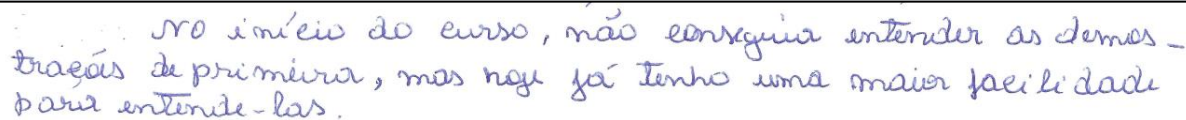 No início do curso, não conseguia entender as demos-
traçõs de primeira, mas hoje já tenho uma maior facilidade
para entende-las.